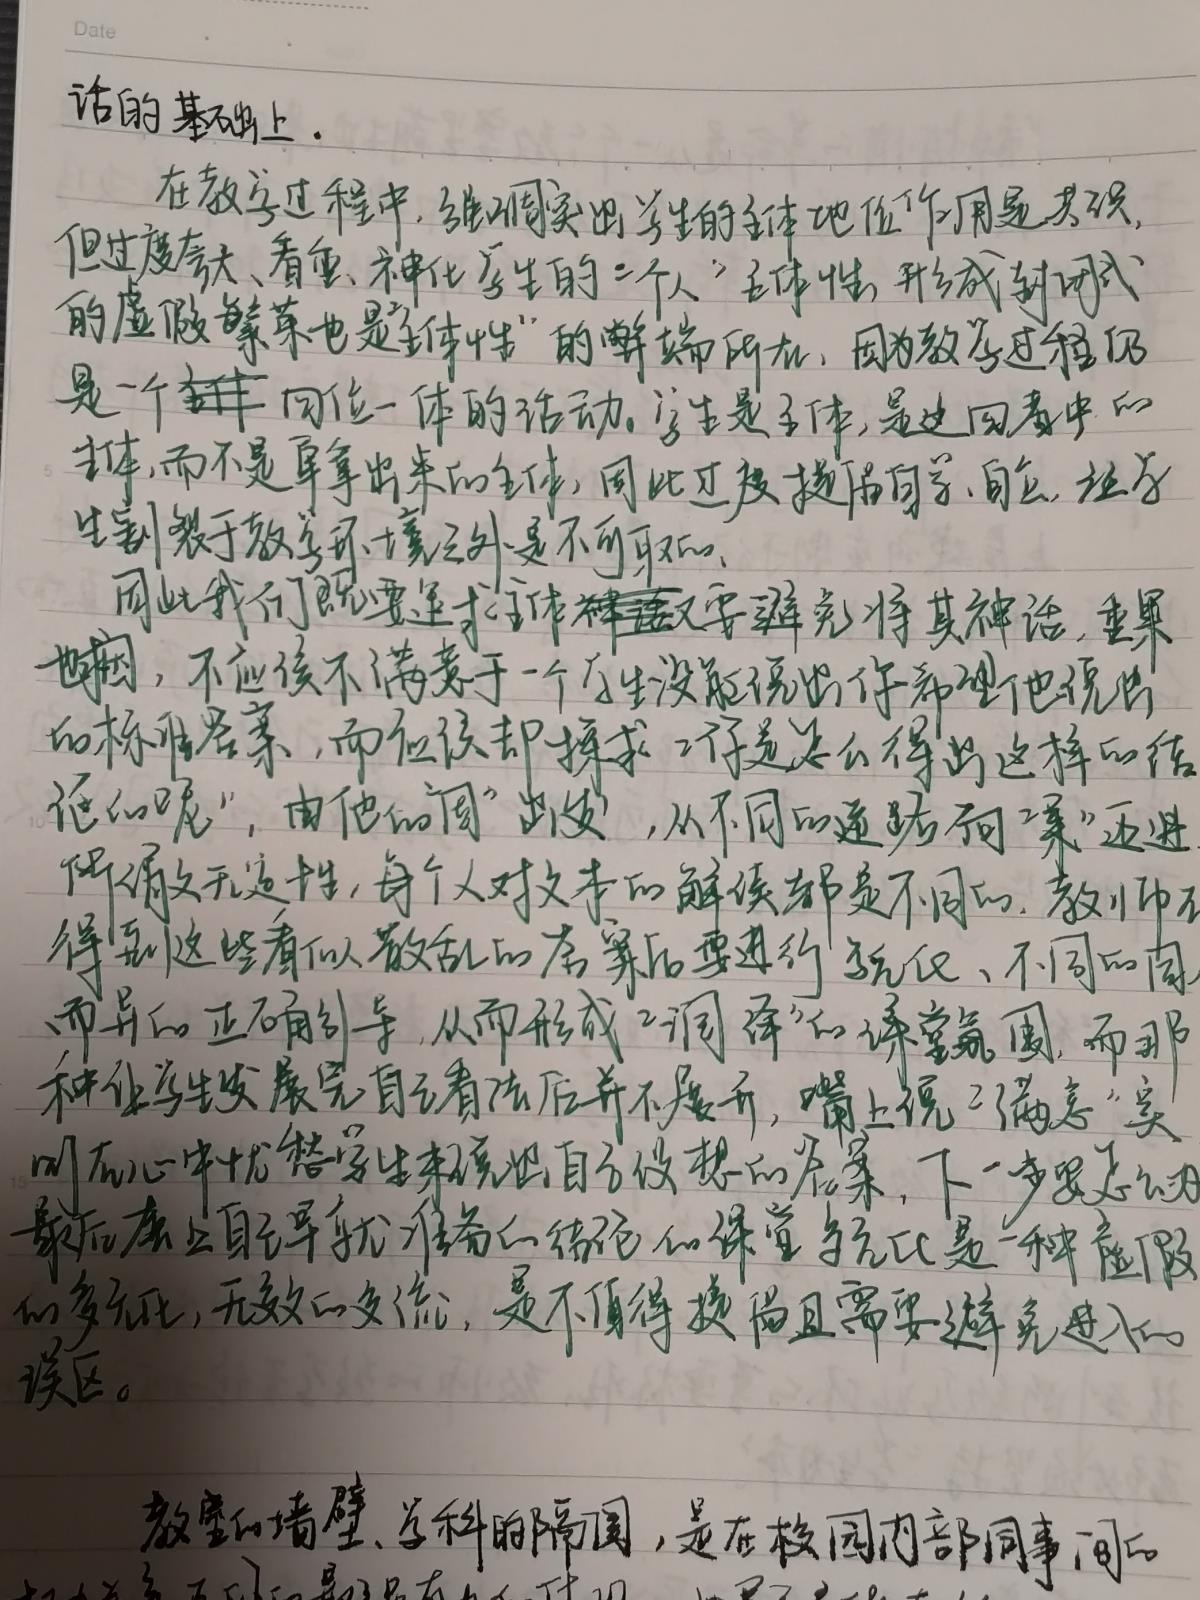 Date
话的基础上.
在教学过程中,强调突出学生的主体地位作用是共识,
但过度夸大、看重、神化学生的“个人”主体性,形成封闭式
的虚假繁荣也是“主体性”的弊端所在,因为教学过程仍
是一个 四位一体的活动。学生是主体,是这四者中的
主体,而不是单拿出来的主体,因此过度提倡自学、自立,让学
生割裂于教学环境之外是不可取的.
因此我们既要追求主体 又要避免将其神话,重果
也 因,不应该不满意于一个学生没能说出你希望他说出
的标准答案,而应该却探求“你是怎么得出这样的结
论的呢”,由他的“闻”出发,从不同的道路向“案”迈进.
所谓文无定性,每个人对文本的解读都是不同的.教师在
得到这些看似散乱的答案后要进行多元化、不同的因人
而异的正确引导,从而形成“润泽”的课堂氛围,而那
种让学生发展完自己看法后并不展开,嘴上说“满意”实
则在心中忧 学生未说出自己设想的答案,下一步要怎么办
最后 上自己早就准备的结论的课堂多元化是一种虚假
的多元化,无效的交流,是不值得提倡且需要避免进入的
误区。
教室的墙壁、学科的隔阂,是在校园内部同事间的